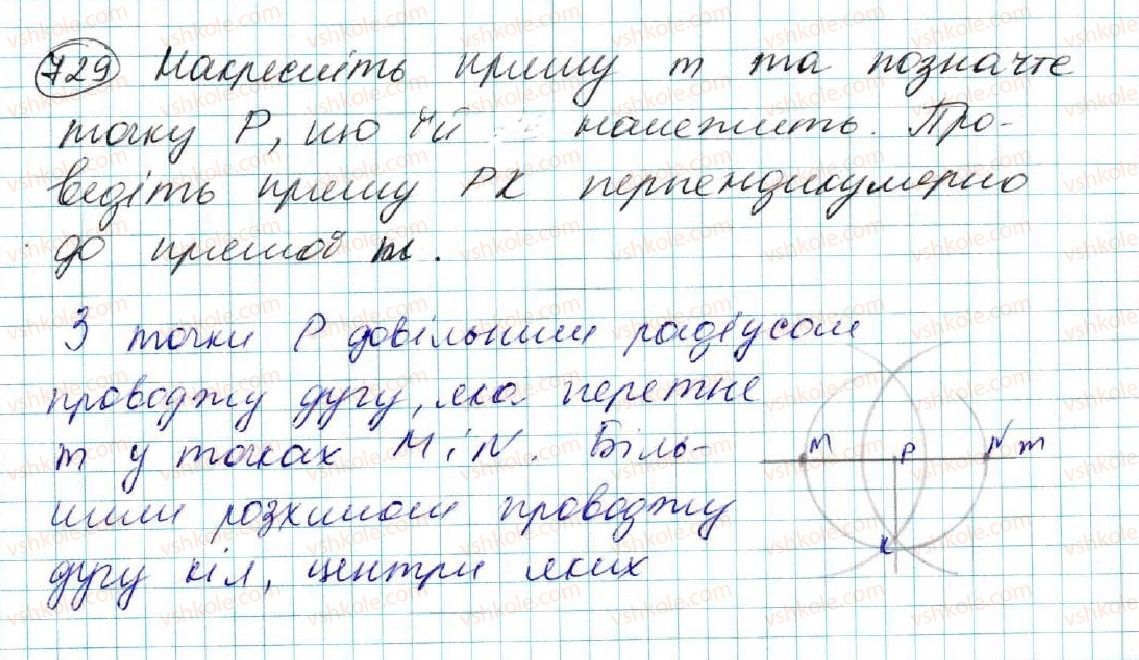 729 Накресліть пряму m та позначте
точку P, що їй належить. Про-
ведіть пряму PK перпендикулярно
до прямої m.
З точки P довільним радіусом
проводжу дугу, яка перетне
m у точках M і N. Біль-
шим розхилом проводжу
дугу кіл, центри яких
M P N m
K